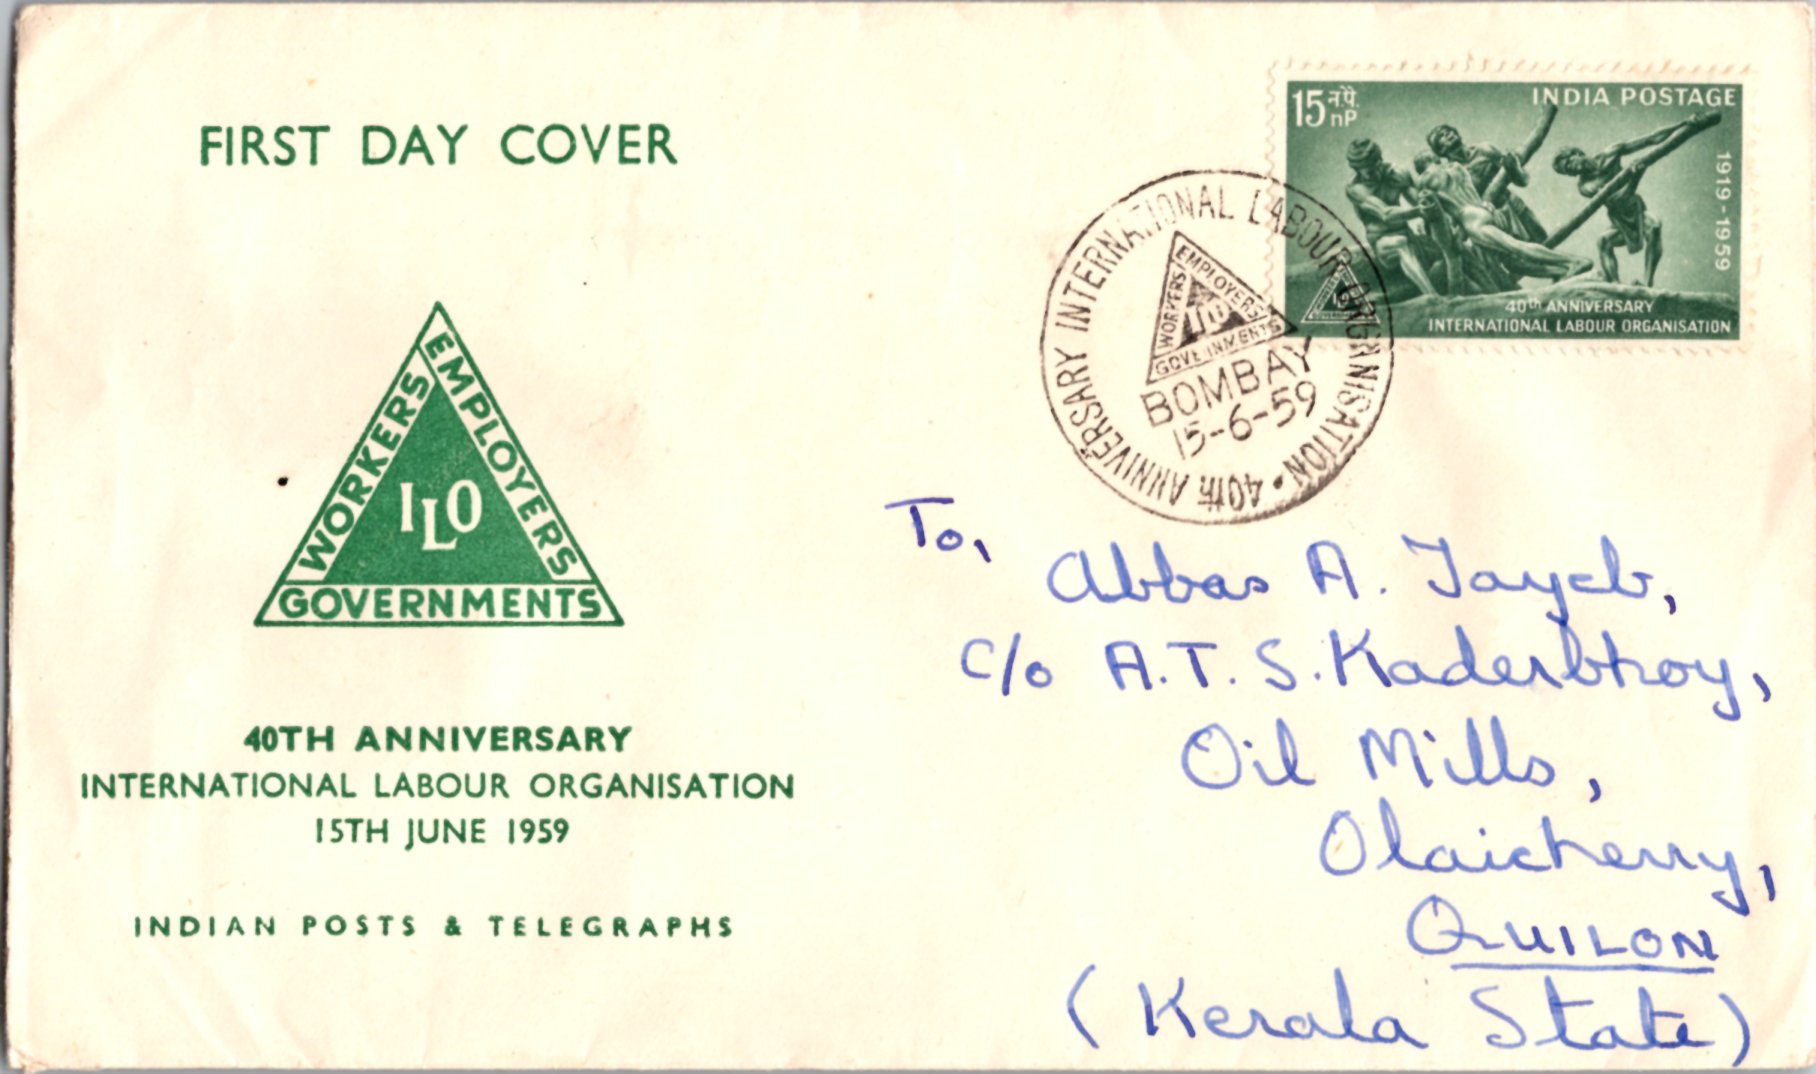 FIRST DAY COVER
WORKERS
EMPLOYERS
ILO
GOVERNMENTS
40TH ANNIVERSARY
INTERNATIONAL LABOUR ORGANISATION
15TH JUNE 1959
INDIAN POSTS & TELEGRAPHS
15 न.पै. nP
INDIA POSTAGE
1919-1959
40th ANNIVERSARY
INTERNATIONAL LABOUR ORGANISATION
40TH ANNIVERSARY INTERNATIONAL LABOUR ORGANISATION •
WORKERS
EMPLOYERS
ILO
GOVERNMENTS
BOMBAY
15-6-59
To,
Abbas A. Tayeb,
C/o A.T.S. Kaderbhoy,
Oil Mills,
Olaicherry,
QUILON
(Kerala State)